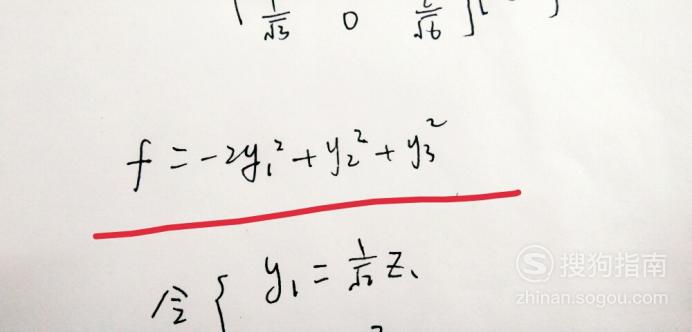 1/√3 0 2/√6
f = -2y₁² + y₂² + y₃²
令 { y₁ = 1/√2 z₁
搜狗指南
zhinan.sogou.com